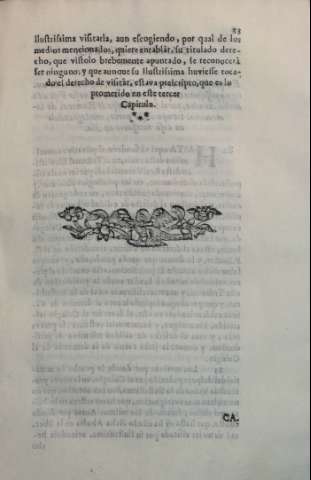 23
Ilustrissima visitarla, aun escogiendo, por qual de los
medios mencionados, quiere entablar su titulado dere-
cho, que vistolo brebemente apuntado, se reconocerà
ser ninguno: y que aunque su Ilustrissima huviesse toca-
do el derecho de visitar, estava prescripto, que es lo
prometido en este tercer
Capitulo.
CA.